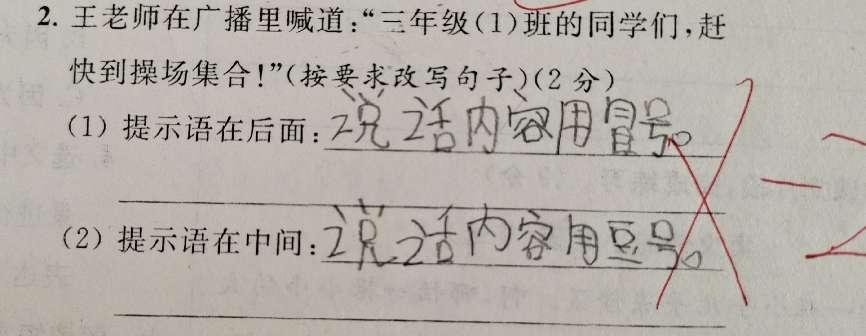 2. 王老师在广播里喊道:“三年级(1)班的同学们,赶
快到操场集合!”(按要求改写句子)(2分)
(1) 提示语在后面:说话内容用冒号。
(2) 提示语在中间:说话内容用逗号。
-2